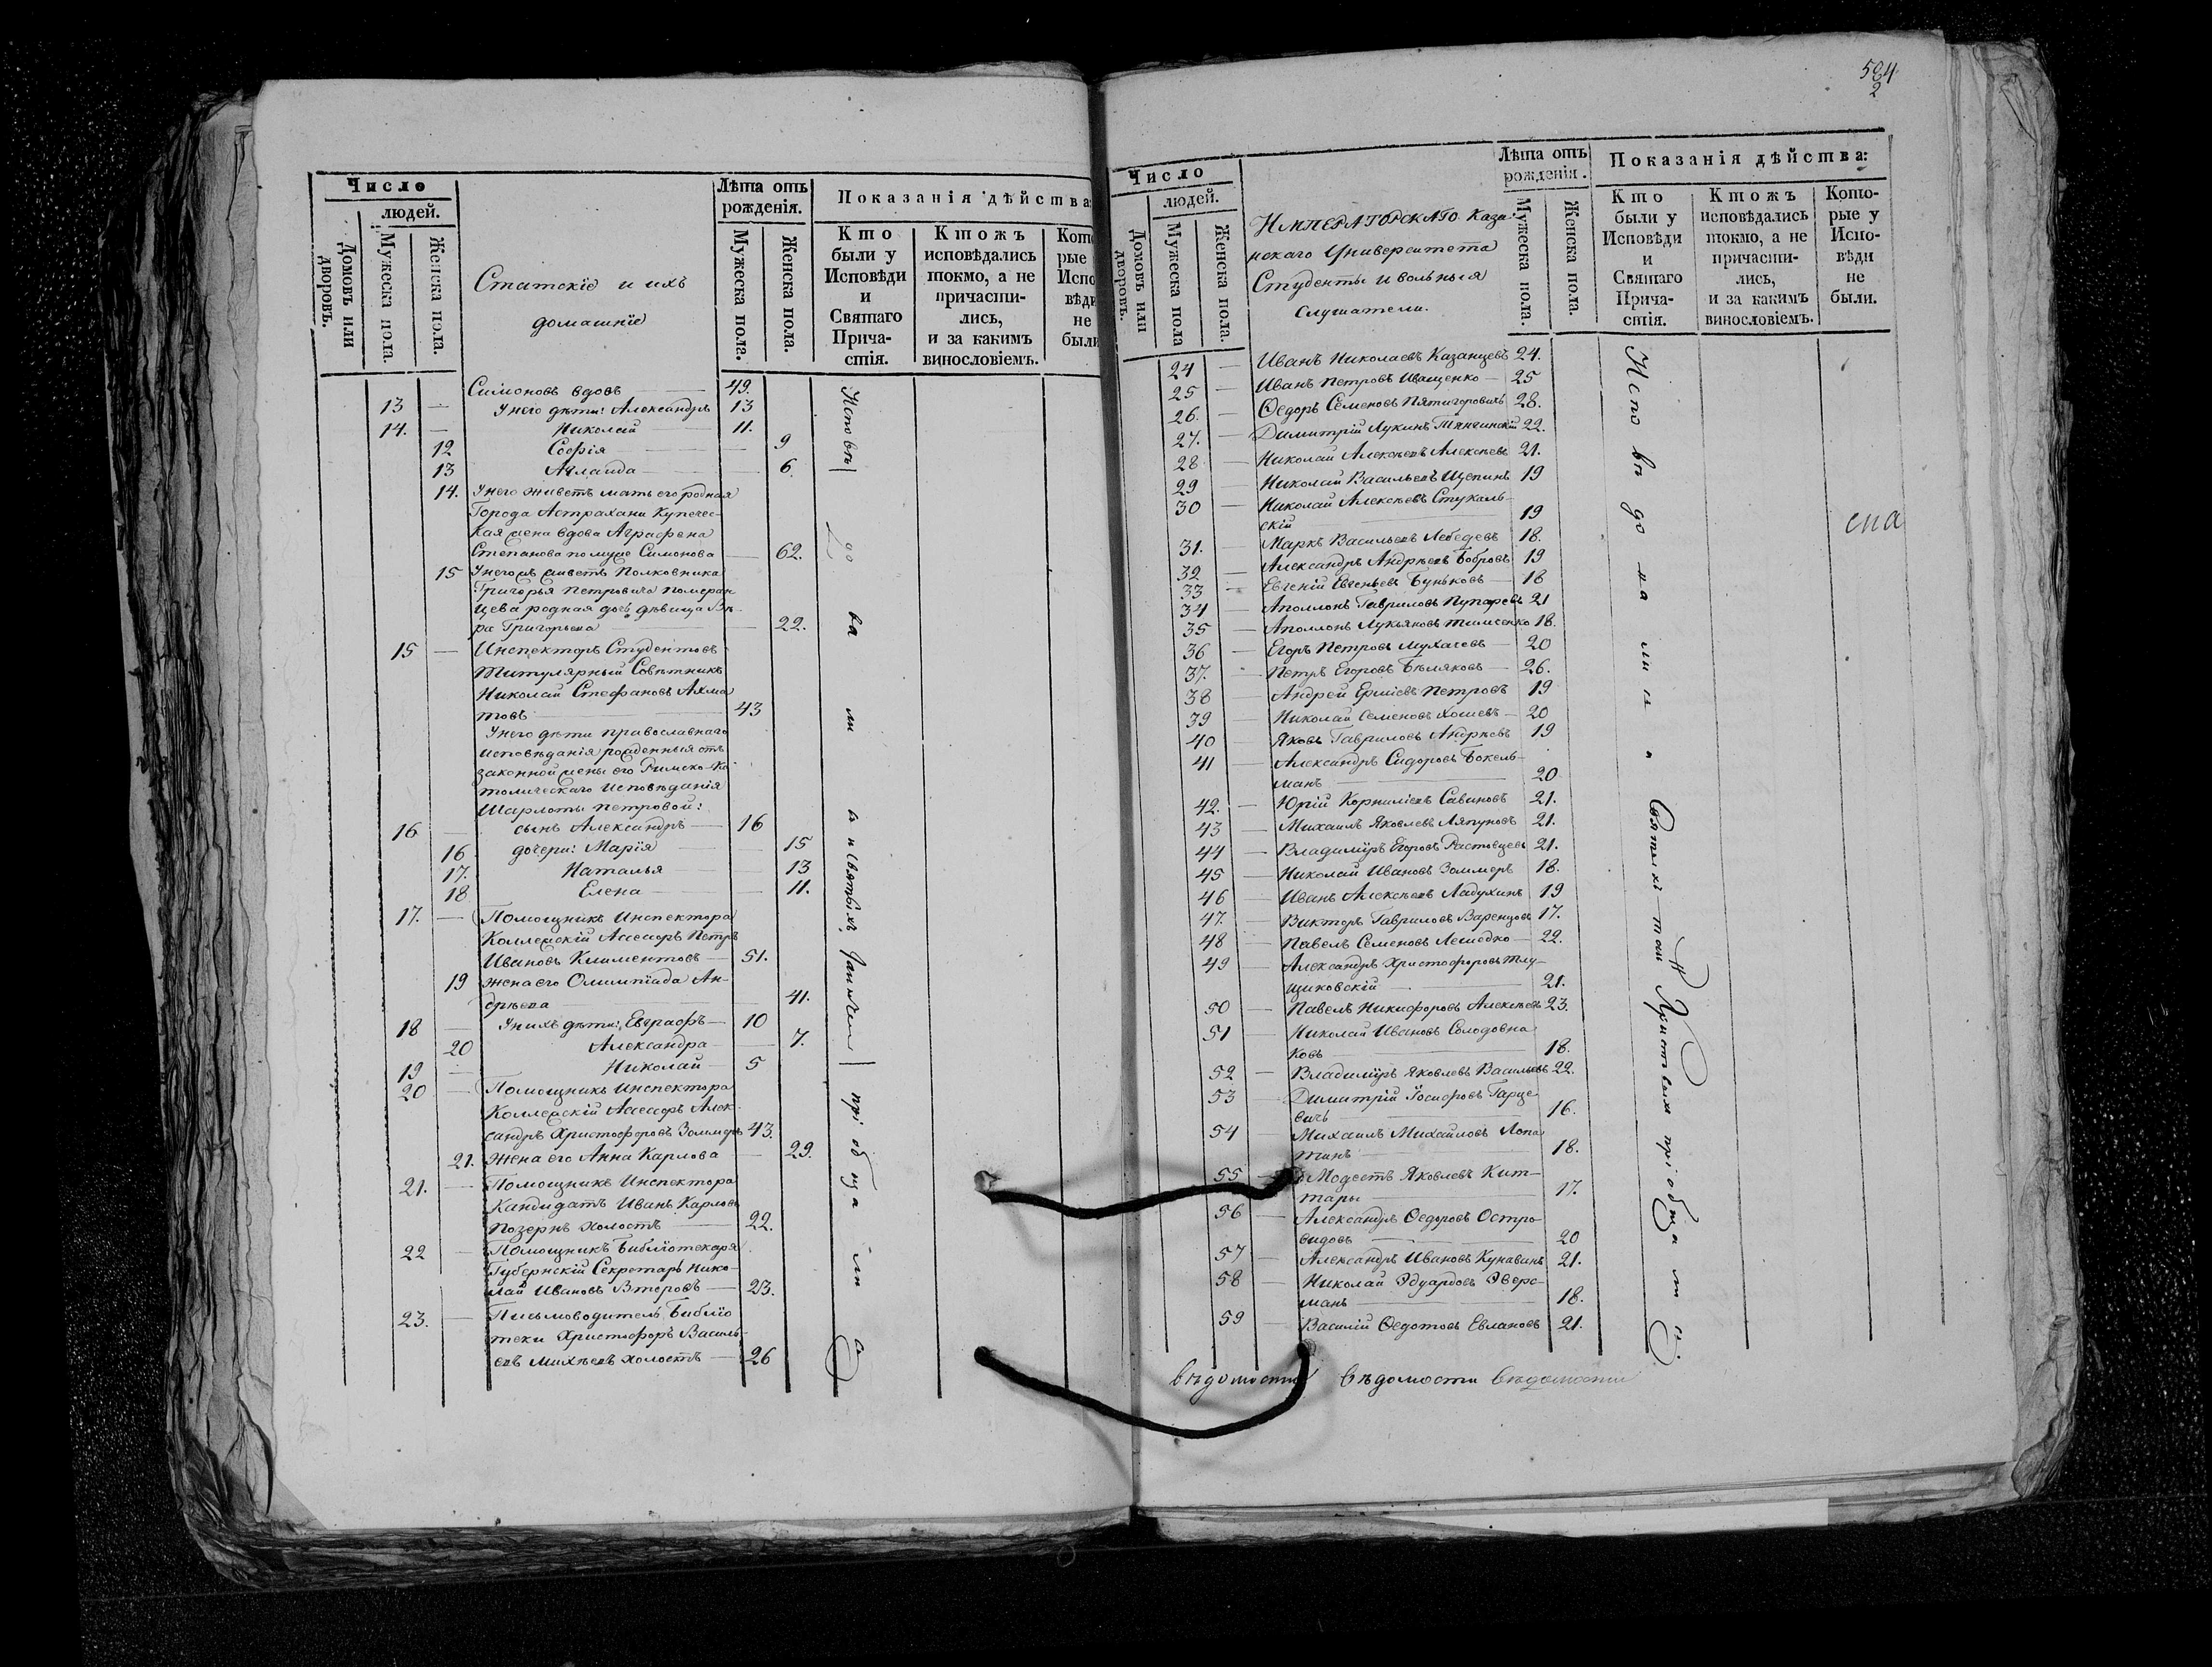 Число
людей.
Домовъ или дворовъ.
Мужеска пола.
Женска пола.
Статскіе и ихъ
домашніе
Лѣта отъ
рожденія.
Мужеска пола.
Женска пола.
Показанія дѣйства
Кто
были у
Исповѣди
и
Святаго
Прича-
стія.
Ктожъ
исповѣдались
токмо, а не
причасти-
лись,
и за какимъ
винословіемъ.
Симоновъ вдовъ 49.
13 — У него дѣти: Александръ 13
14. — Николай 11.
12 Софія 9
13 Аглаида 6.
14. У него живетъ мать его родная
Города Астрахани Купечес-
кая жена вдова Аграфена
Степанова по мужѣ Симонова 62.
15 У него жъ живетъ Полковника
Григорья Петровича Померан
цева родная дочь дѣвица Вѣ-
ра Григорьева 22.
15 — Инспекторъ Студентовъ
Титулярный Совѣтникъ
Николай Стефановъ Ахма
товъ 43
У него дѣти православнаго
исповѣданія рожденныя отъ
законной жены его Римско-Ка
толическаго исповѣданія
Шарлоты Петровой:
16 — сынъ Александръ 16
16 дочери: Марія 15
17. Наталья 13
18 Елена 11.
17. — Помощникъ Инспектора
Коллежскій Асессоръ Петръ
Ивановъ Климентовъ 51.
19 Жена его Олимпіада Ан-
дрѣева 41.
18 — У нихъ дѣти: Евграфъ 10
20 Александра 7.
19 — Николай 5
20 — Помощникъ Инспектора
Коллежскій Асессоръ Алек-
сандръ Христофоровъ Зоммеръ 43.
21. Жена его Анна Карлова 29.
21. — Помощникъ Инспектора
Кандидатъ Иванъ Карловъ
Позернъ холостъ 22.
22 — Помощникъ Библіотекаря
Губернскій Секретарь Нико-
лай Ивановъ Второвъ 23.
23. — Письмоводитель Библіо
теки Христофоръ Василь-
евъ Михѣевъ холостъ 26
Исповѣдовались и Святыхъ Таинъ пріобщались
524
2
Число
людей.
Домовъ или дворовъ.
Мужеска пола
Женска пола.
ИМПЕРАТОРСКАГО Каза-
нскаго Университета
Студенты и вольные
слушатели.
Лѣта отъ
рожденія.
Мужеска пола.
Женска пола.
Показанія дѣйства:
Кто
были у
Исповѣди
и
Святаго
Прича-
стія.
Ктожъ
исповѣдались
токмо, а не
причасти-
лись,
и за какимъ
винословіемъ.
Кото-
рые у
Испо-
вѣди
не
были.
24 — Иванъ Николаевъ Казанцевъ 24.
25 — Иванъ Петровъ Иващенко 25
26. — Ѳедоръ Семеновъ Пятигоровичъ 28.
27. — Димитрій Лукинъ 22.
28 — Николай Алексѣевъ Алексѣевъ 21.
29 — Николай Васильевъ Щепинъ 19
30 — Николай Алексѣевъ Стукаль-
скій 19
31. — Маркъ Васильевъ Лебедевъ 18.
32 — Александръ Андрѣевъ Бобровъ 19
33 — Евгеній Евгеньевъ Буньковъ 18
34 — Аполлонъ Гавриловъ Пупаревъ 21
35 — Аполлонъ Лукьяновъ Тимсенко 18.
36 — Егоръ Петровъ Мухачевъ 20
37. — Петръ Егоровъ Бѣляковъ 26.
38 — Андрей Ерміевъ Петровъ 19
39 — Николай Семеновъ Хошевъ 20
40 — Яковъ Гавриловъ Андрѣевъ 19
41 — Александръ Сидоровъ Бокель-
манъ 20
42. — Юрій Корниліевъ Савиновъ 21.
43 — Михаилъ Яковлевъ Ляпуновъ 21.
44 — Владиміръ Егоровъ Растовцевъ 21.
45 — Николай Ивановъ Зоммеръ 18.
46 — Иванъ Алексѣевъ Ладухинъ 19
47. — Викторъ Гавриловъ Варенцовъ 17.
48 — Павелъ Семеновъ Лешедко 22.
49 — Александръ Христофоровъ Тлу-
щиковскій 21.
50 — Павелъ Никифоровъ Алексѣевъ 23.
51 — Николай Ивановъ Солодовни
ковъ 18.
52 — Владиміръ Яковлевъ Васильевъ 22.
53 — Димитрій Іосифовъ Гарце
вичъ 16.
54 — Михаилъ Михайловъ Лопа
тинъ 18.
55 — Модестъ Яковлевъ Кит-
тары 17.
56 — Александръ Ѳедоровъ Остро
видовъ 20
57 — Александръ Ивановъ Кунавинъ 21.
58 — Николай Эдуардовъ Эверс-
манъ 18.
59 — Василій Ѳедотовъ Евлановъ 21.
Исповѣдовались и Святыхъ таинъ Христовыхъ пріобщались.
вѣдомости вѣдомости вѣдомости